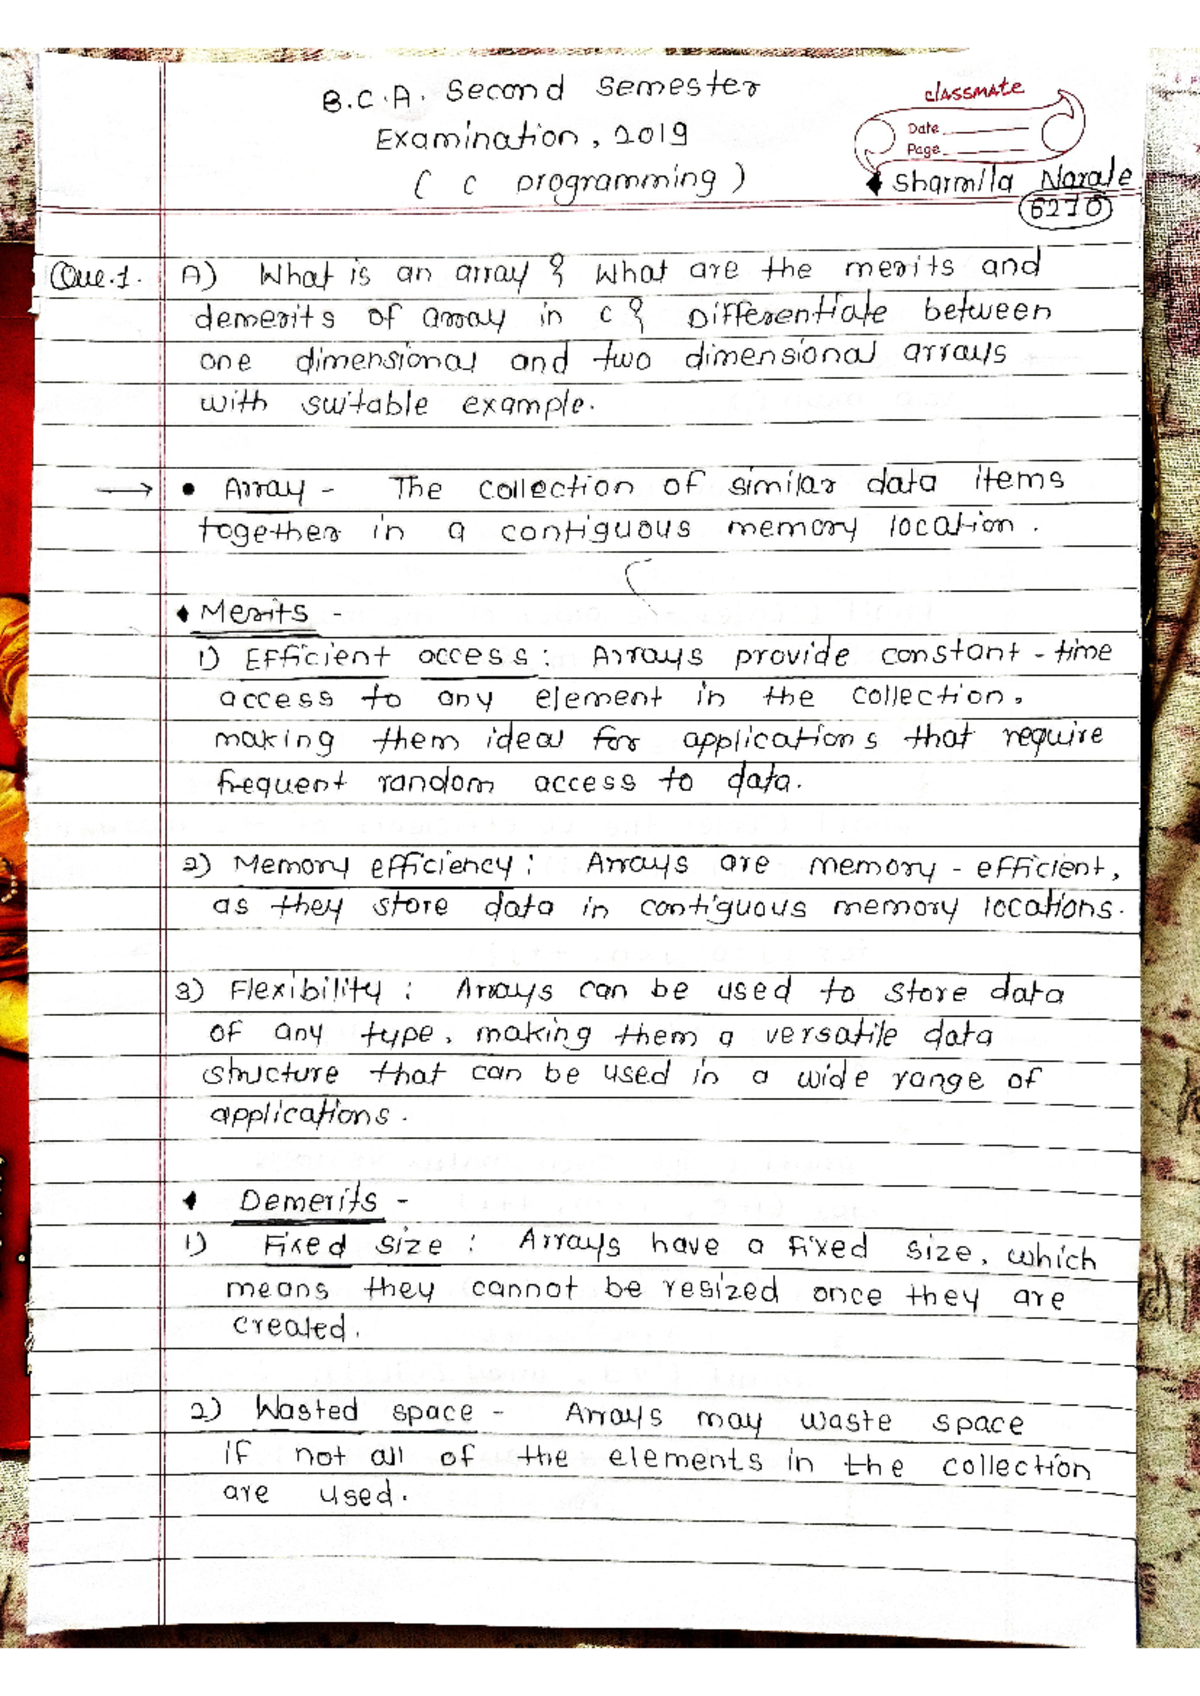 B.C.A. Second Semester
classmate
Examination, 2019
Date
Page
( C programming )
Sharmila Narale
6270
Que.1. A) What is an array ? What are the merits and
demerits of array in C ? Differentiate between
one dimensional and two dimensional arrays
with suitable example.
→ • Array - The collection of similar data items
together in a contiguous memory location.
♦ Merits -
1) Efficient access : Arrays provide constant - time
access to any element in the collection,
making them ideal for applications that require
frequent random access to data.
2) Memory efficiency : Arrays are memory - efficient,
as they store data in contiguous memory locations.
3) Flexibility : Arrays can be used to store data
of any type, making them a versatile data
structure that can be used in a wide range of
applications.
♦ Demerits -
1) Fixed size : Arrays have a fixed size, which
means they cannot be resized once they are
created.
2) Wasted space - Arrays may waste space
if not all of the elements in the collection
are used.